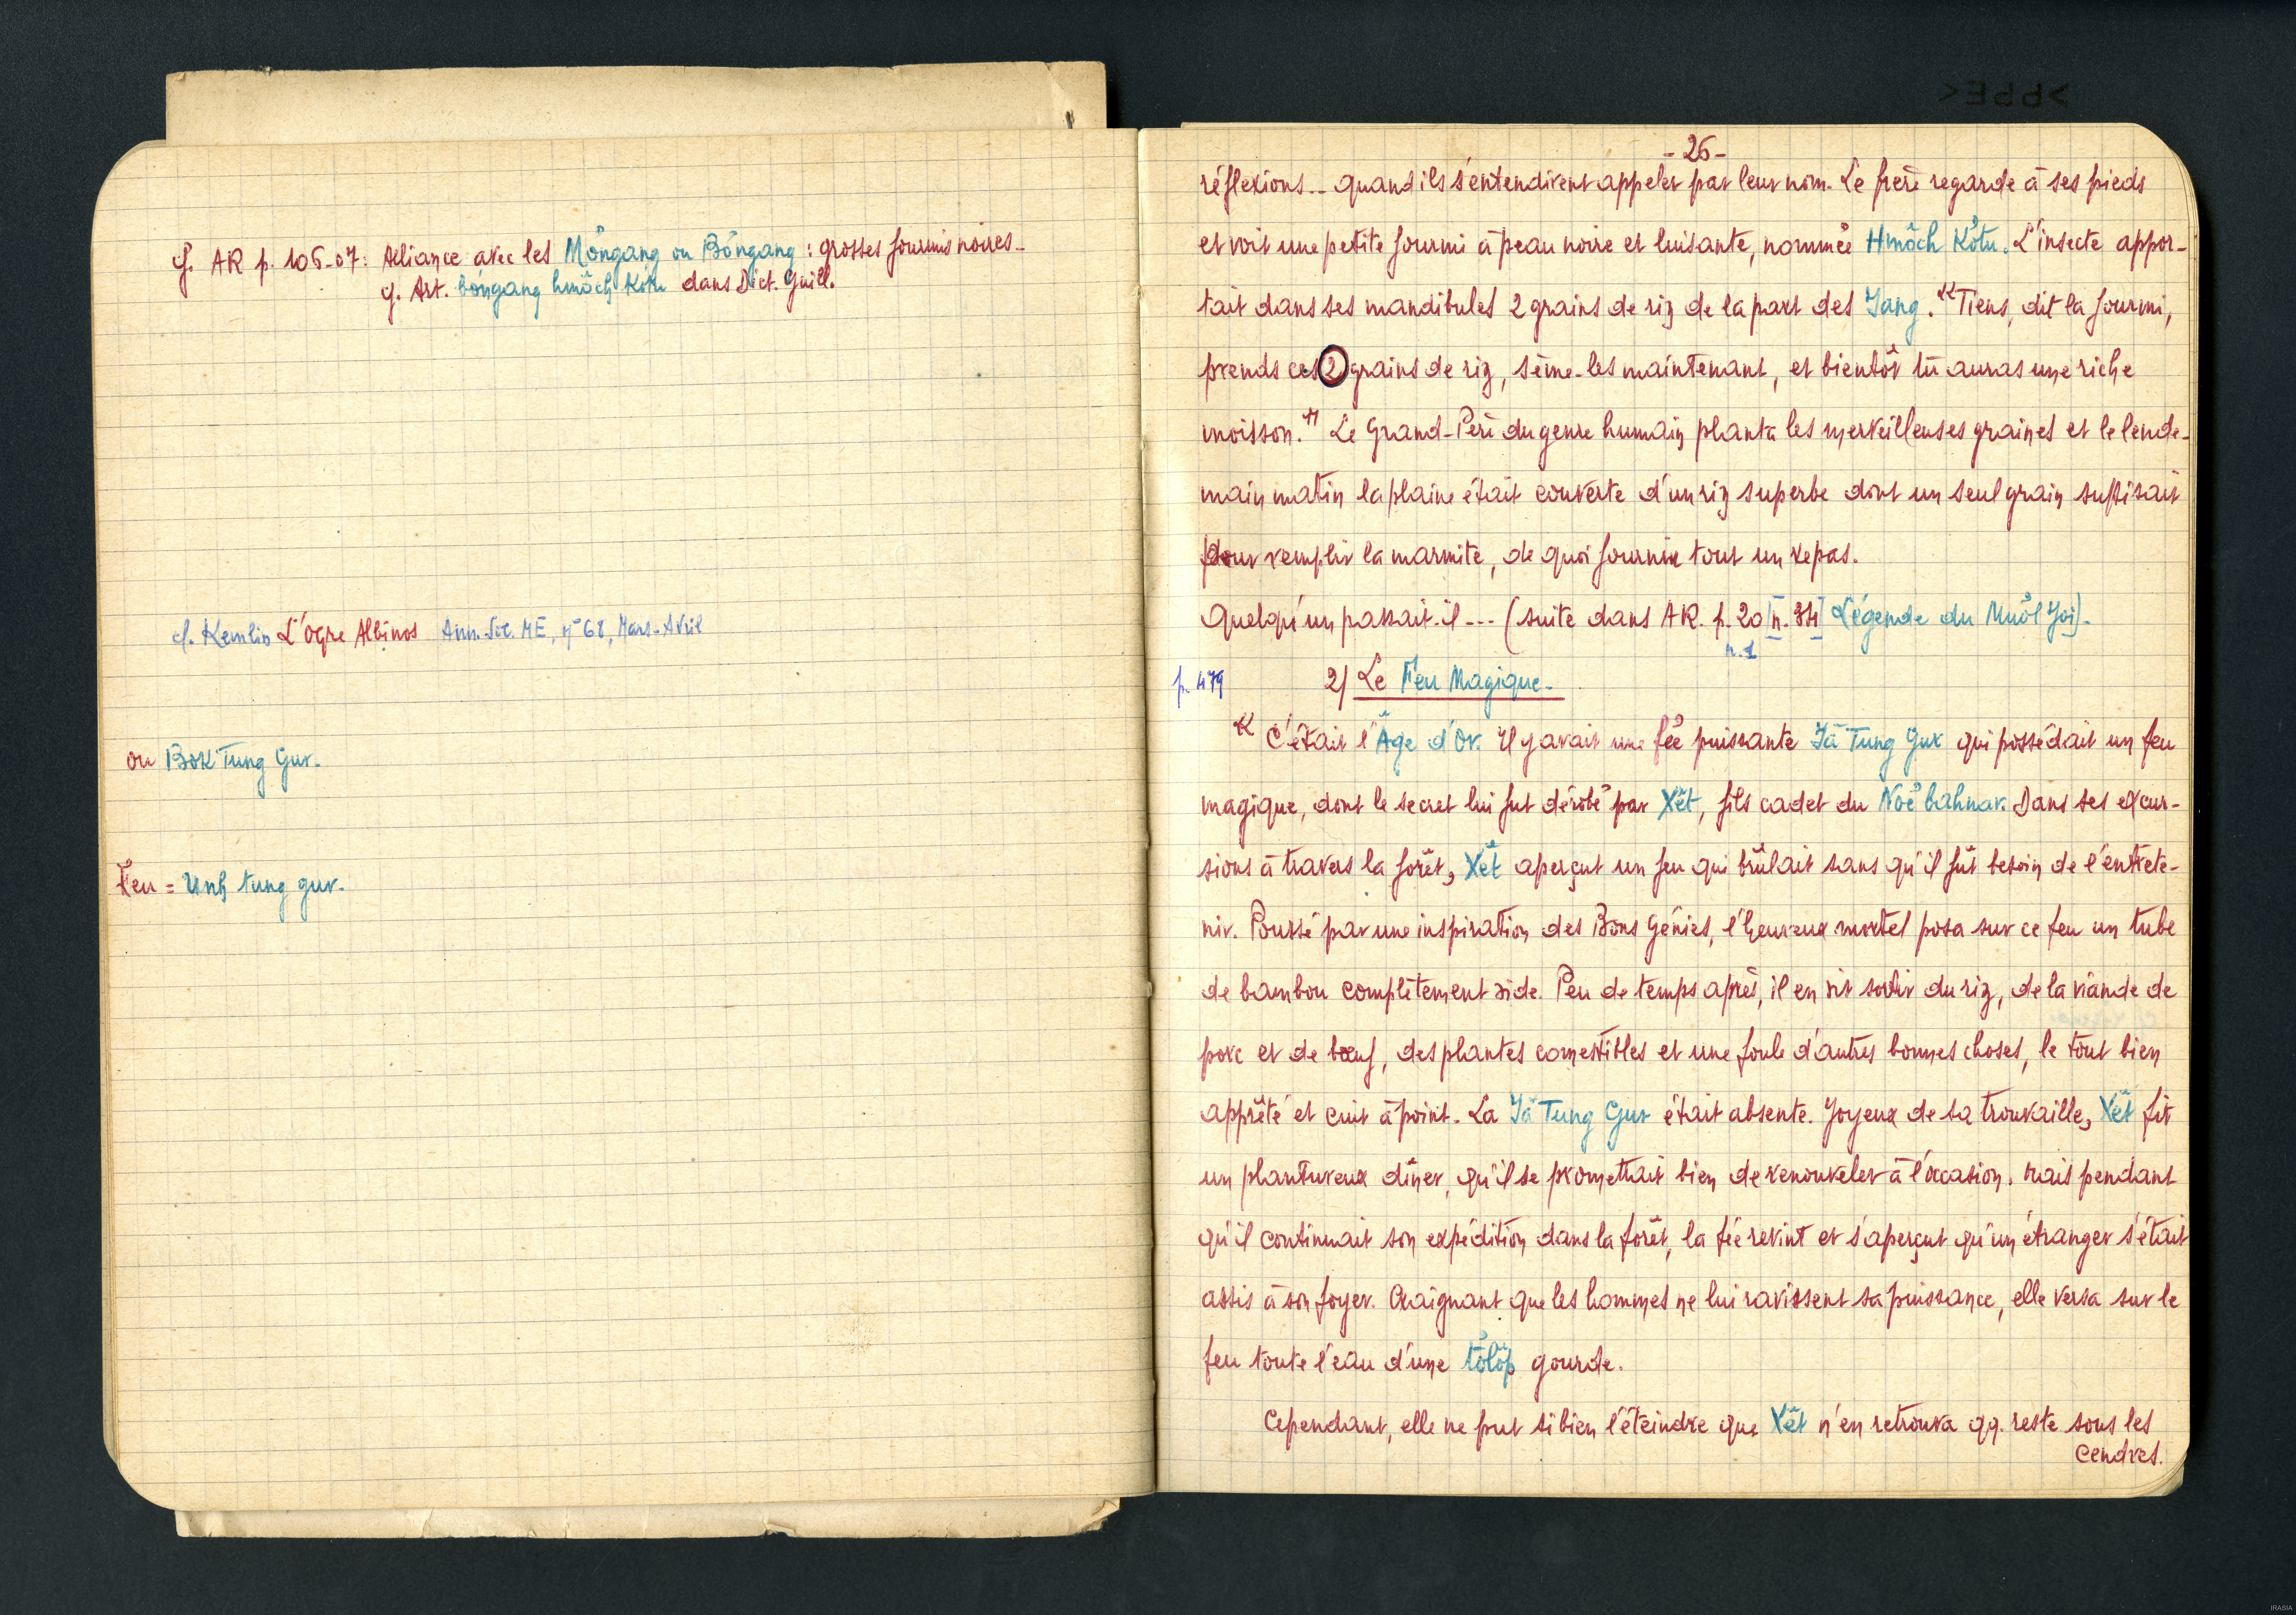 cf. AR p. 106-07: Alliance avec les Mơ̆ngang ou Bơ̆ngang : grosses fourmis noires_
cf. Art. bơ̆ngang hmŏch kơ̆tu dans Dict. Guill.
cf. Kemlin L'Ogre Albinos Ann. Soc. ME, n° 68, Mars-Avril
ou Bok Tung Gur.
Feu = Unh tung gur.
- 26 -
réflexions... quand ils s'entendirent appeler par leur nom. Le frère regarde à ses pieds
et voit une petite fourmi à peau noire et luisante, nommée Hmôch Kơ̆tu. L'insecte appor-
tait dans ses mandibules 2 grains de riz de la part des Yang. "Tiens, dit la fourmi,
prends ces 2 grains de riz, sème-les maintenant, et bientôt tu auras une riche
moisson." Le Grand-Père du genre humain planta les merveilleuses graines et le lende-
main matin la plaine était couverte d'un riz superbe dont un seul grain suffisait
pour remplir la marmite, de quoi fournir tout un repas.
Quelqu'un passait-il --- (suite dans AR. p. 20 [n. 34] Légende du Muôl Yoi).
n. 1
p. 479
2) Le Feu Magique.
"C'était l'Âge d'Or. Il y avait une fée puissante Yă Tung Gur qui possédait un feu
magique, dont le secret lui fut dérobé par Xêt, fils cadet du Noé bahnar. Dans ses excur-
sions à travers la forêt, Xêt aperçut un feu qui brûlait sans qu'il fût besoin de l'entrete-
nir. Poussé par une inspiration des Bons Génies, l'heureux mortel posa sur ce feu un tube
de bambou complètement vide. Peu de temps après, il en vit sortir du riz, de la viande de
porc et de bœuf, des plantes comestibles et une foule d'autres bonnes choses, le tout bien
apprêté et cuit à point. La Yă Tung Gur était absente. Joyeux de sa trouvaille, Xêt fit
un plantureux dîner, qu'il se promettait bien de renouveler à l'occasion. Mais pendant
qu'il continuait son expédition dans la forêt, la fée revint et s'aperçut qu'un étranger s'était
assis à son foyer. Craignant que les hommes ne lui ravissent sa puissance, elle versa sur le
feu toute l'eau d'une tơ̆lŏp gourde.
Cependant, elle ne put si bien l'éteindre que Xêt n'en retrouva qq. reste sous les
cendres.
IRASIA